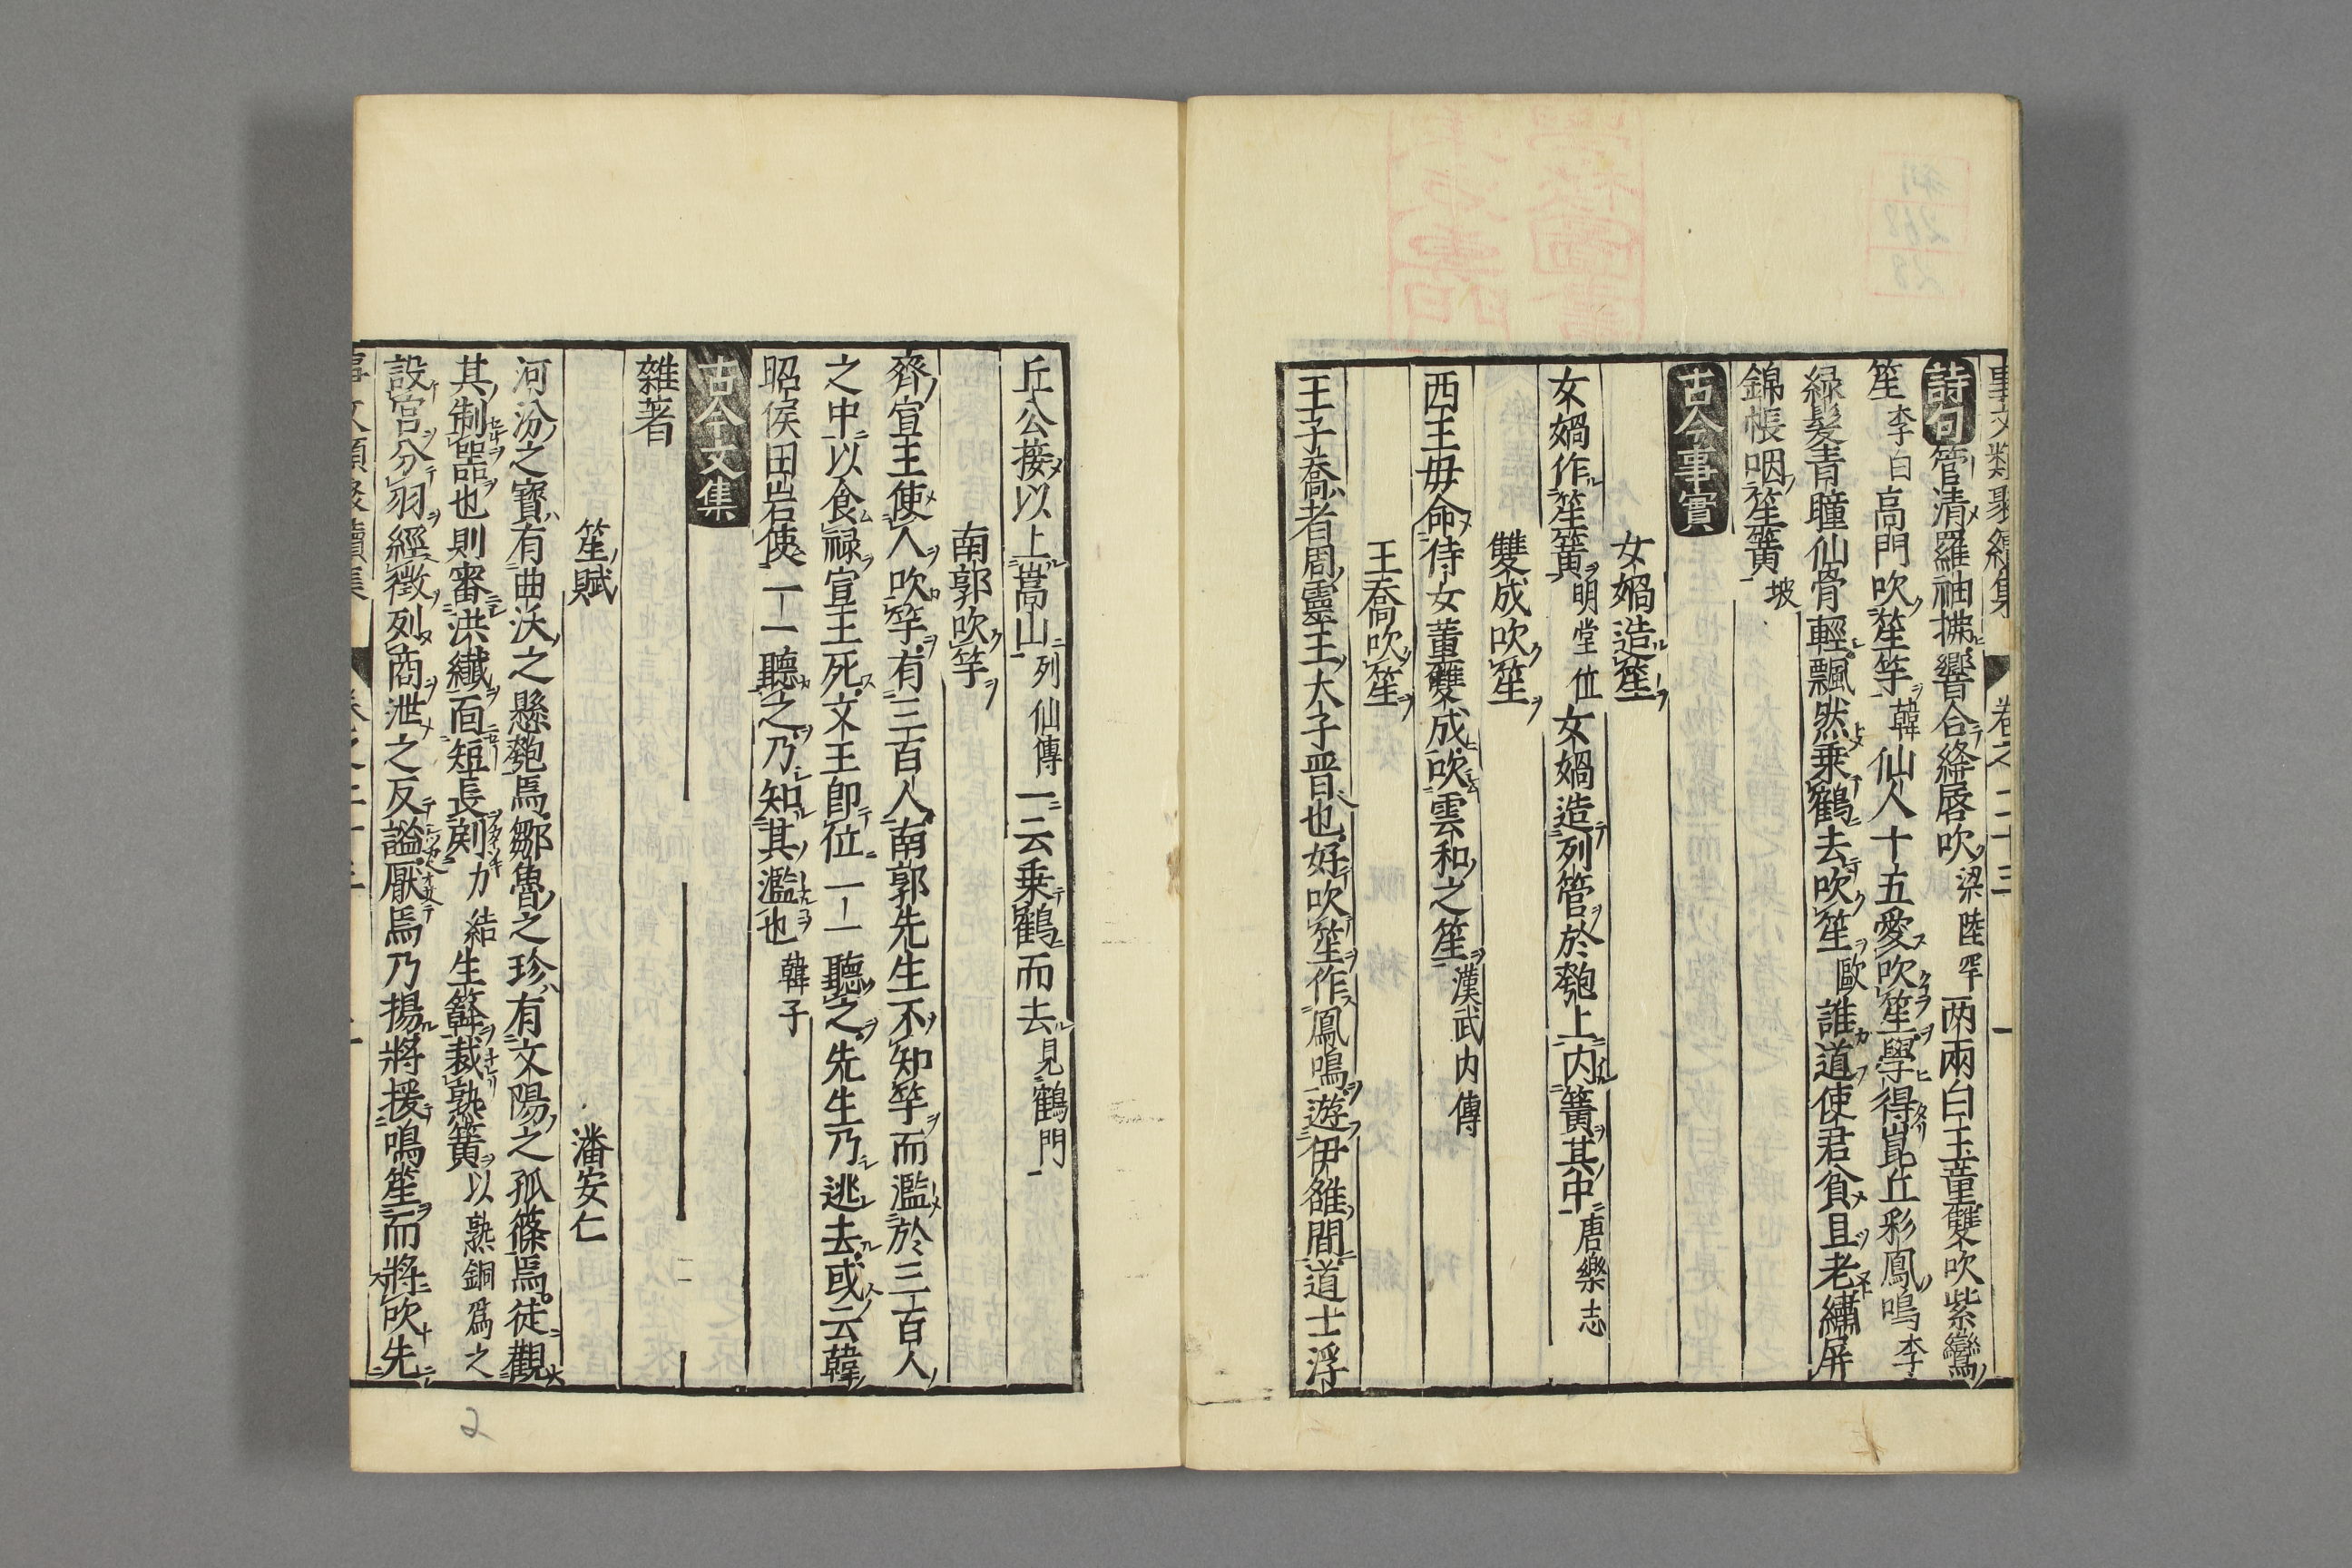 事文類聚續集 卷之二十三 一
詩句 管清羅袖拂響合絳唇吹 梁陸罕 兩兩白玉童雙吹紫鸞
笙 李白 高門吹笙竽 韓 仙人十五愛吹笙學得崑丘彩鳳鳴 李
綠髮青瞳仙骨輕飄然乗鶴去吹笙 歐 誰道使君貧且老繡屏
錦帳咽笙簧 坡
古今事實
女媧造笙
女媧作笙簧 明堂位 女媧造列管於匏上内簧其中 唐樂志
雙成吹笙
西王母命侍女董雙成吹雲和之笙 漢武内傳
王喬吹笙
王子喬者周靈王大子晋也好吹笙作鳳鳴遊伊雒間道士浮
丘公接以上嵩山 列仙傳 一云乗鶴而去 見鶴門
南郭吹竽
齊宣王使人吹竽有三百人南郭先生不知竽而濫於三百人
之中以食禄宣王死文王即位一一聽之先生乃逃去或云韓
昭侯田岩使一一聽之乃知其濫也 韓子
古今文集
雜著
笙賦 潘安仁
河汾之寳有曲沃之懸匏焉鄒魯之珍有文陽之孤篠焉徒觀
其制噐也則審洪纎面短長剫 力結 生簳裁熟簧 以熟銅爲之
設宮分羽經徵列商泄之反謐厭焉乃揚將援鳴笙而將吹先
2